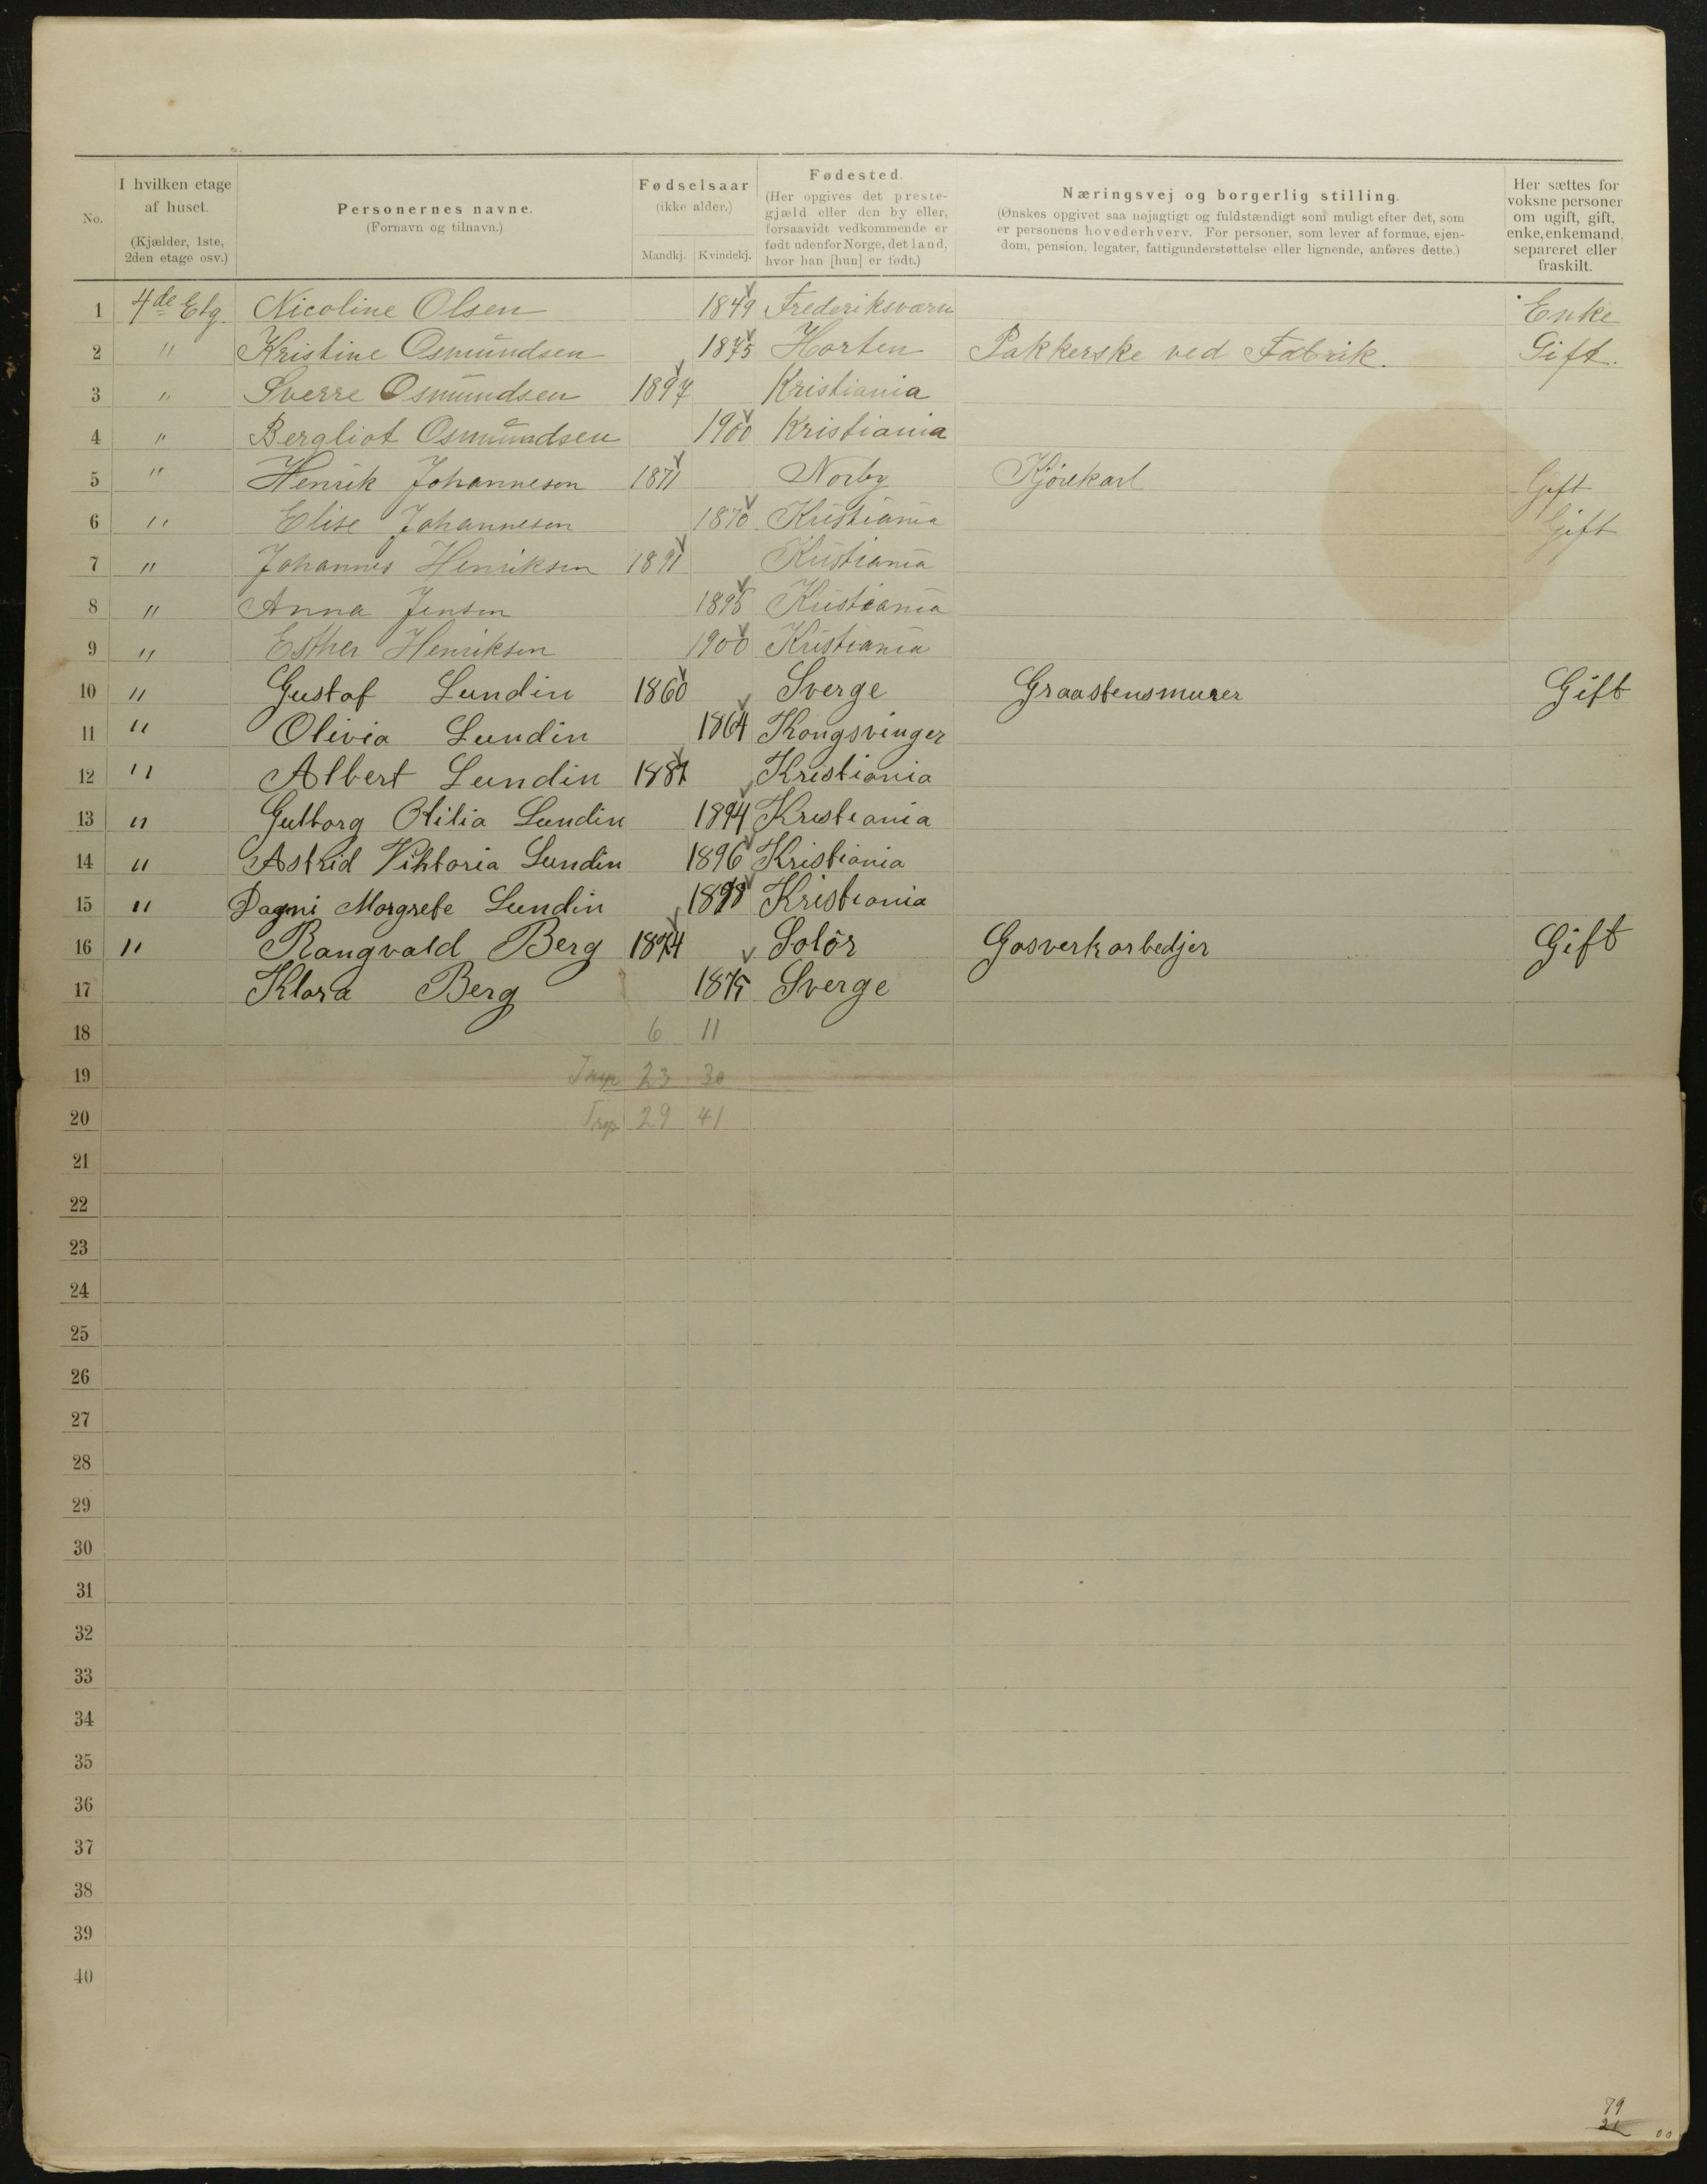 No. I hvilken etage af huset. (Kjælder, 1ste, 2den etage osv.) Personernes navne. (Fornavn og tilnavn.) Fødselsaar (ikke alder.) Mandkj. Kvindekj. Fødested. (Her opgives det prestegjæld eller den by eller, forsaavidt vedkommende er født udenfor Norge, det land, hvor han [hun] er født.) Næringsvej og borgerlig stilling. (Ønskes opgivet saa nøjagtigt og fuldstændigt som muligt efter det, som er personens hovederhverv. For personer, som lever af formue, ejendom, pension, legater, fattigunderstøttelse eller lignende, anføres dette.) Her sættes for voksne personer om ugift, gift, enke, enkemand, separeret eller fraskilt.
1 4de Etg. Nicoline Olsen 1849 Frederiksværn Enke
2 " Kristine Osmundsen 1875 Horten Pakkerske ved Fabrik. Gift.
3 " Sverre Osmundsen 1897 Kristiania
4 " Bergliot Osmundsen 1900 Kristiania
5 " Henrik Johannesen 1871 Norby Kjørekarl Gift
6 " Elise Johannesen 1870 Kristiania Gift
7 " Johannes Henriksen 1891 Kristiania
8 " Anna Jensen 1895 Kristiania
9 " Esther Henriksen 1900 Kristiania
10 " Gustaf Lundin 1860 Sverge Graastensmurer Gift
11 " Olivia Lundin 1864 Kongsvinger
12 " Albert Lundin 1887 Kristiania
13 " Gulborg Otilia Lundin 1894 Kristiania
14 " Astrid Vihtoria Lundin 1896 Kristiania
15 " Dagni Margrete Lundin 1898 Kristiania
16 " Rangvald Berg 1874 Solör Gasverkarbedjer Gift
17 Klara Berg 1875 Sverge
18 6 11
19 23 30
20 29 41
21
22
23
24
25
26
27
28
29
30
31
32
33
34
35
36
37
38
39
40
79
21